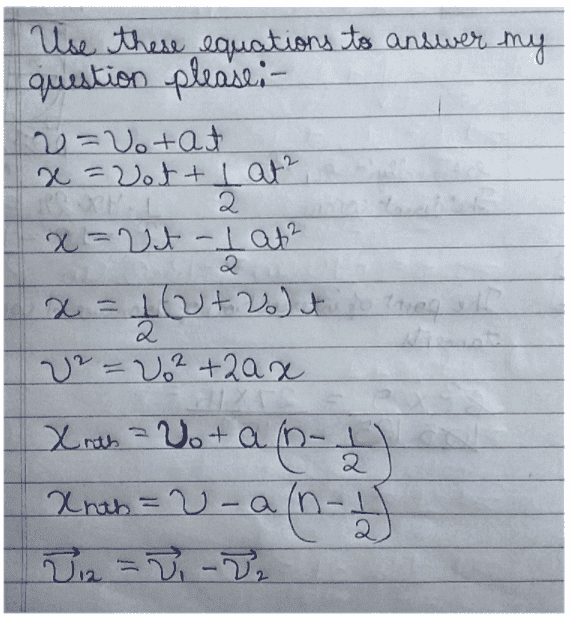 Use these equations to answer my
question please:-
v = v₀ + at
x = v₀t + 1/2 at²
x = vt - 1/2 at²
x = 1/2 (v + v₀) t
v² = v₀² + 2ax
xnth = v₀ + a (n - 1/2)
xnth = v - a (n - 1/2)
v⃗₁₂ = v⃗₁ - v⃗₂